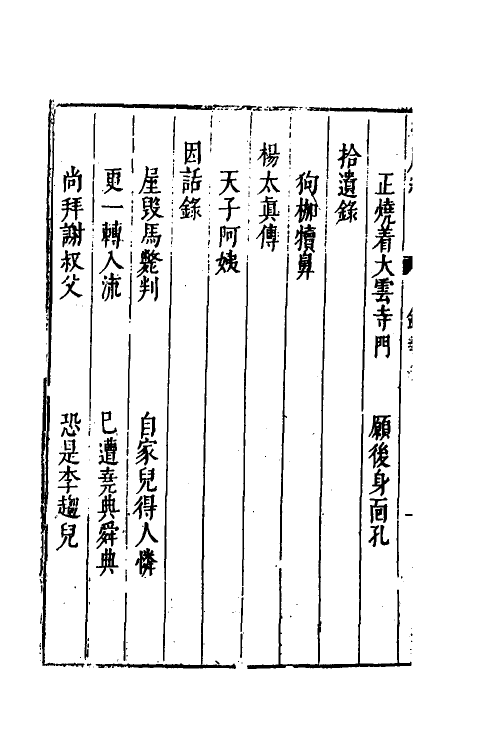 正燒着大雲寺門　願後身面孔
拾遺錄
狗枷犢鼻
楊太真傳
天子阿姨
因話錄
屋毀馬斃判　自家兒得人憐
更一轉入流　已遭堯典舜典
尚拜謝叔父　恐是李趨兒